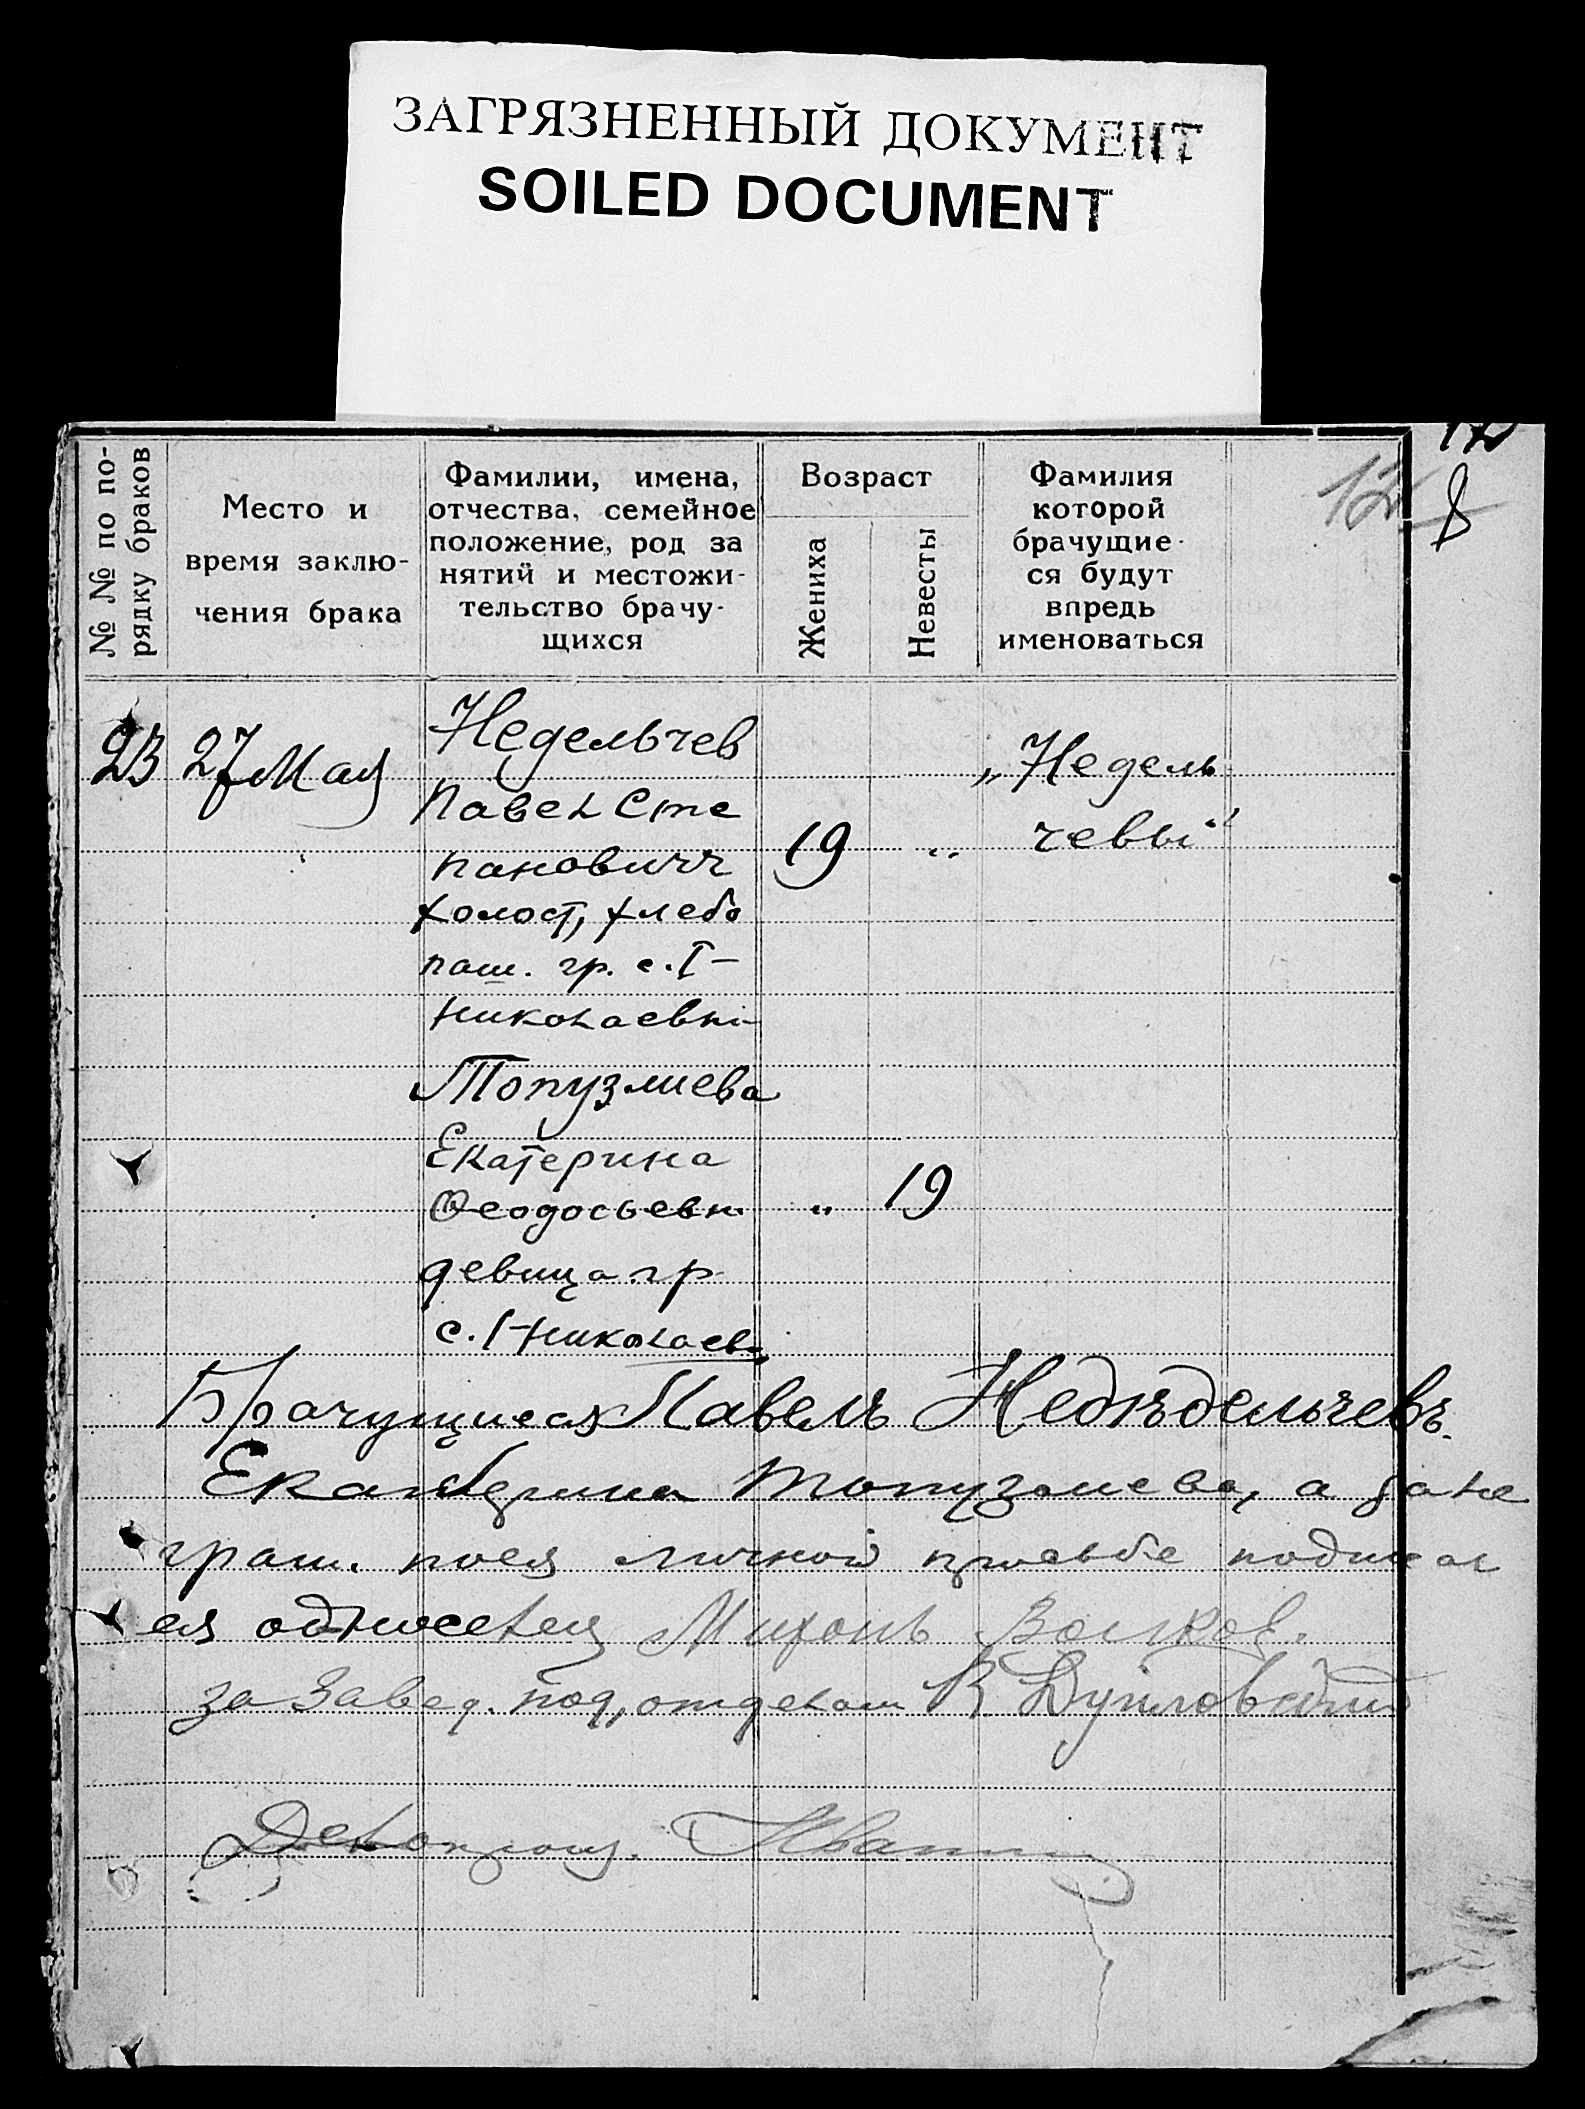 ЗАГРЯЗНЕННЫЙ ДОКУМЕНТ
SOILED DOCUMENT
12
8
№ № по по-
рядку браков
Место и
время заклю-
чения брака
Фамилии, имена,
отчества, семейное
положение, род за
нятий и местожи-
тельство брачу-
щихся
Возраст
Жениха
Невесты
Фамилия
которой
брачущие-
ся будут
впредь
именоваться
23 27 Мая
Недельчев
Павел Сте
пановичч
холост, хлебо
паш. гр. с. I-
Николаевки
19 „
„Недель
чевы"
Топузлиева
Екатерина
Феодосьевн
девица гр
с. I-Николаевк
„ 19
Брачущиеся Павелъ Недѣдельчевъ
Екатерина Топузлиева, а за не
грам. по ея личной просьбе подписал
ся односелец Миронъ Волков.
за Завед. под, отделом В
Делопроиз. Иванн